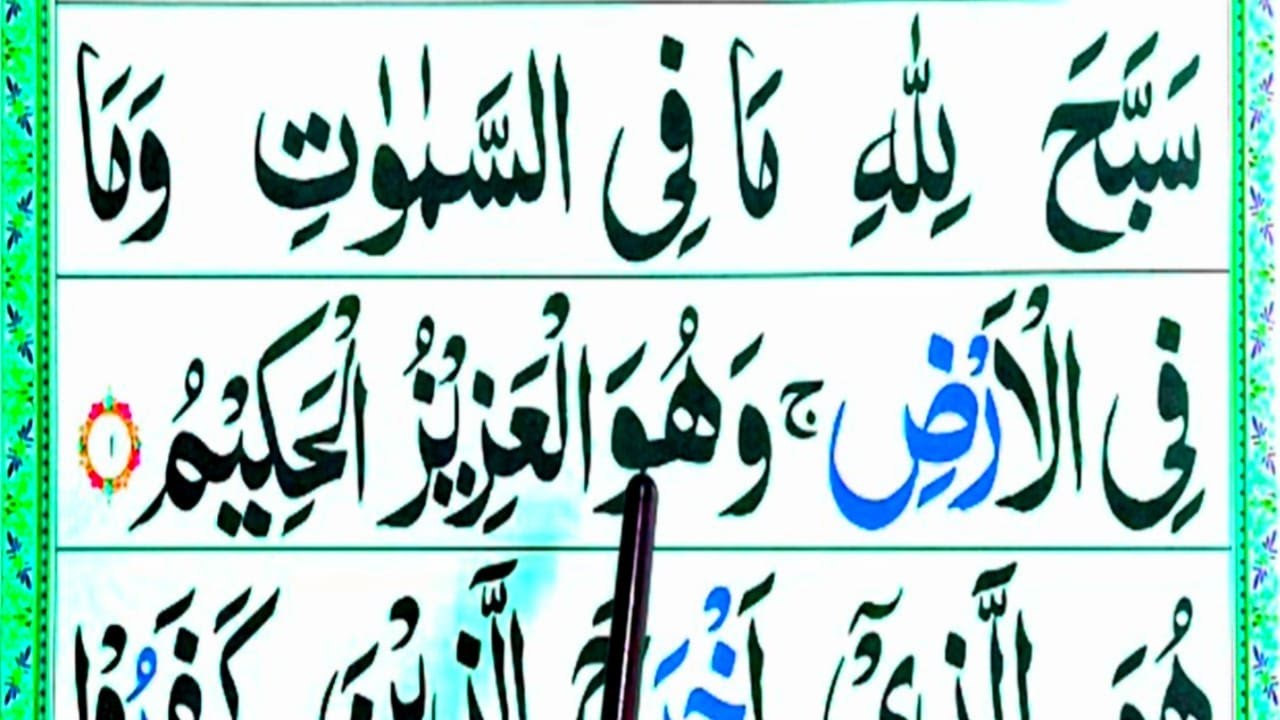 سَبَّحَ لِلّٰهِ مَا فِی السَّمٰوٰتِ وَمَا
فِی الْاَرْضِ ۚ وَهُوَ الْعَزِیْزُ الْحَكِیْمُ ۱
هُوَ الَّذِیْۤ اَخْرَجَ الَّذِیْنَ كَفَرُوْا